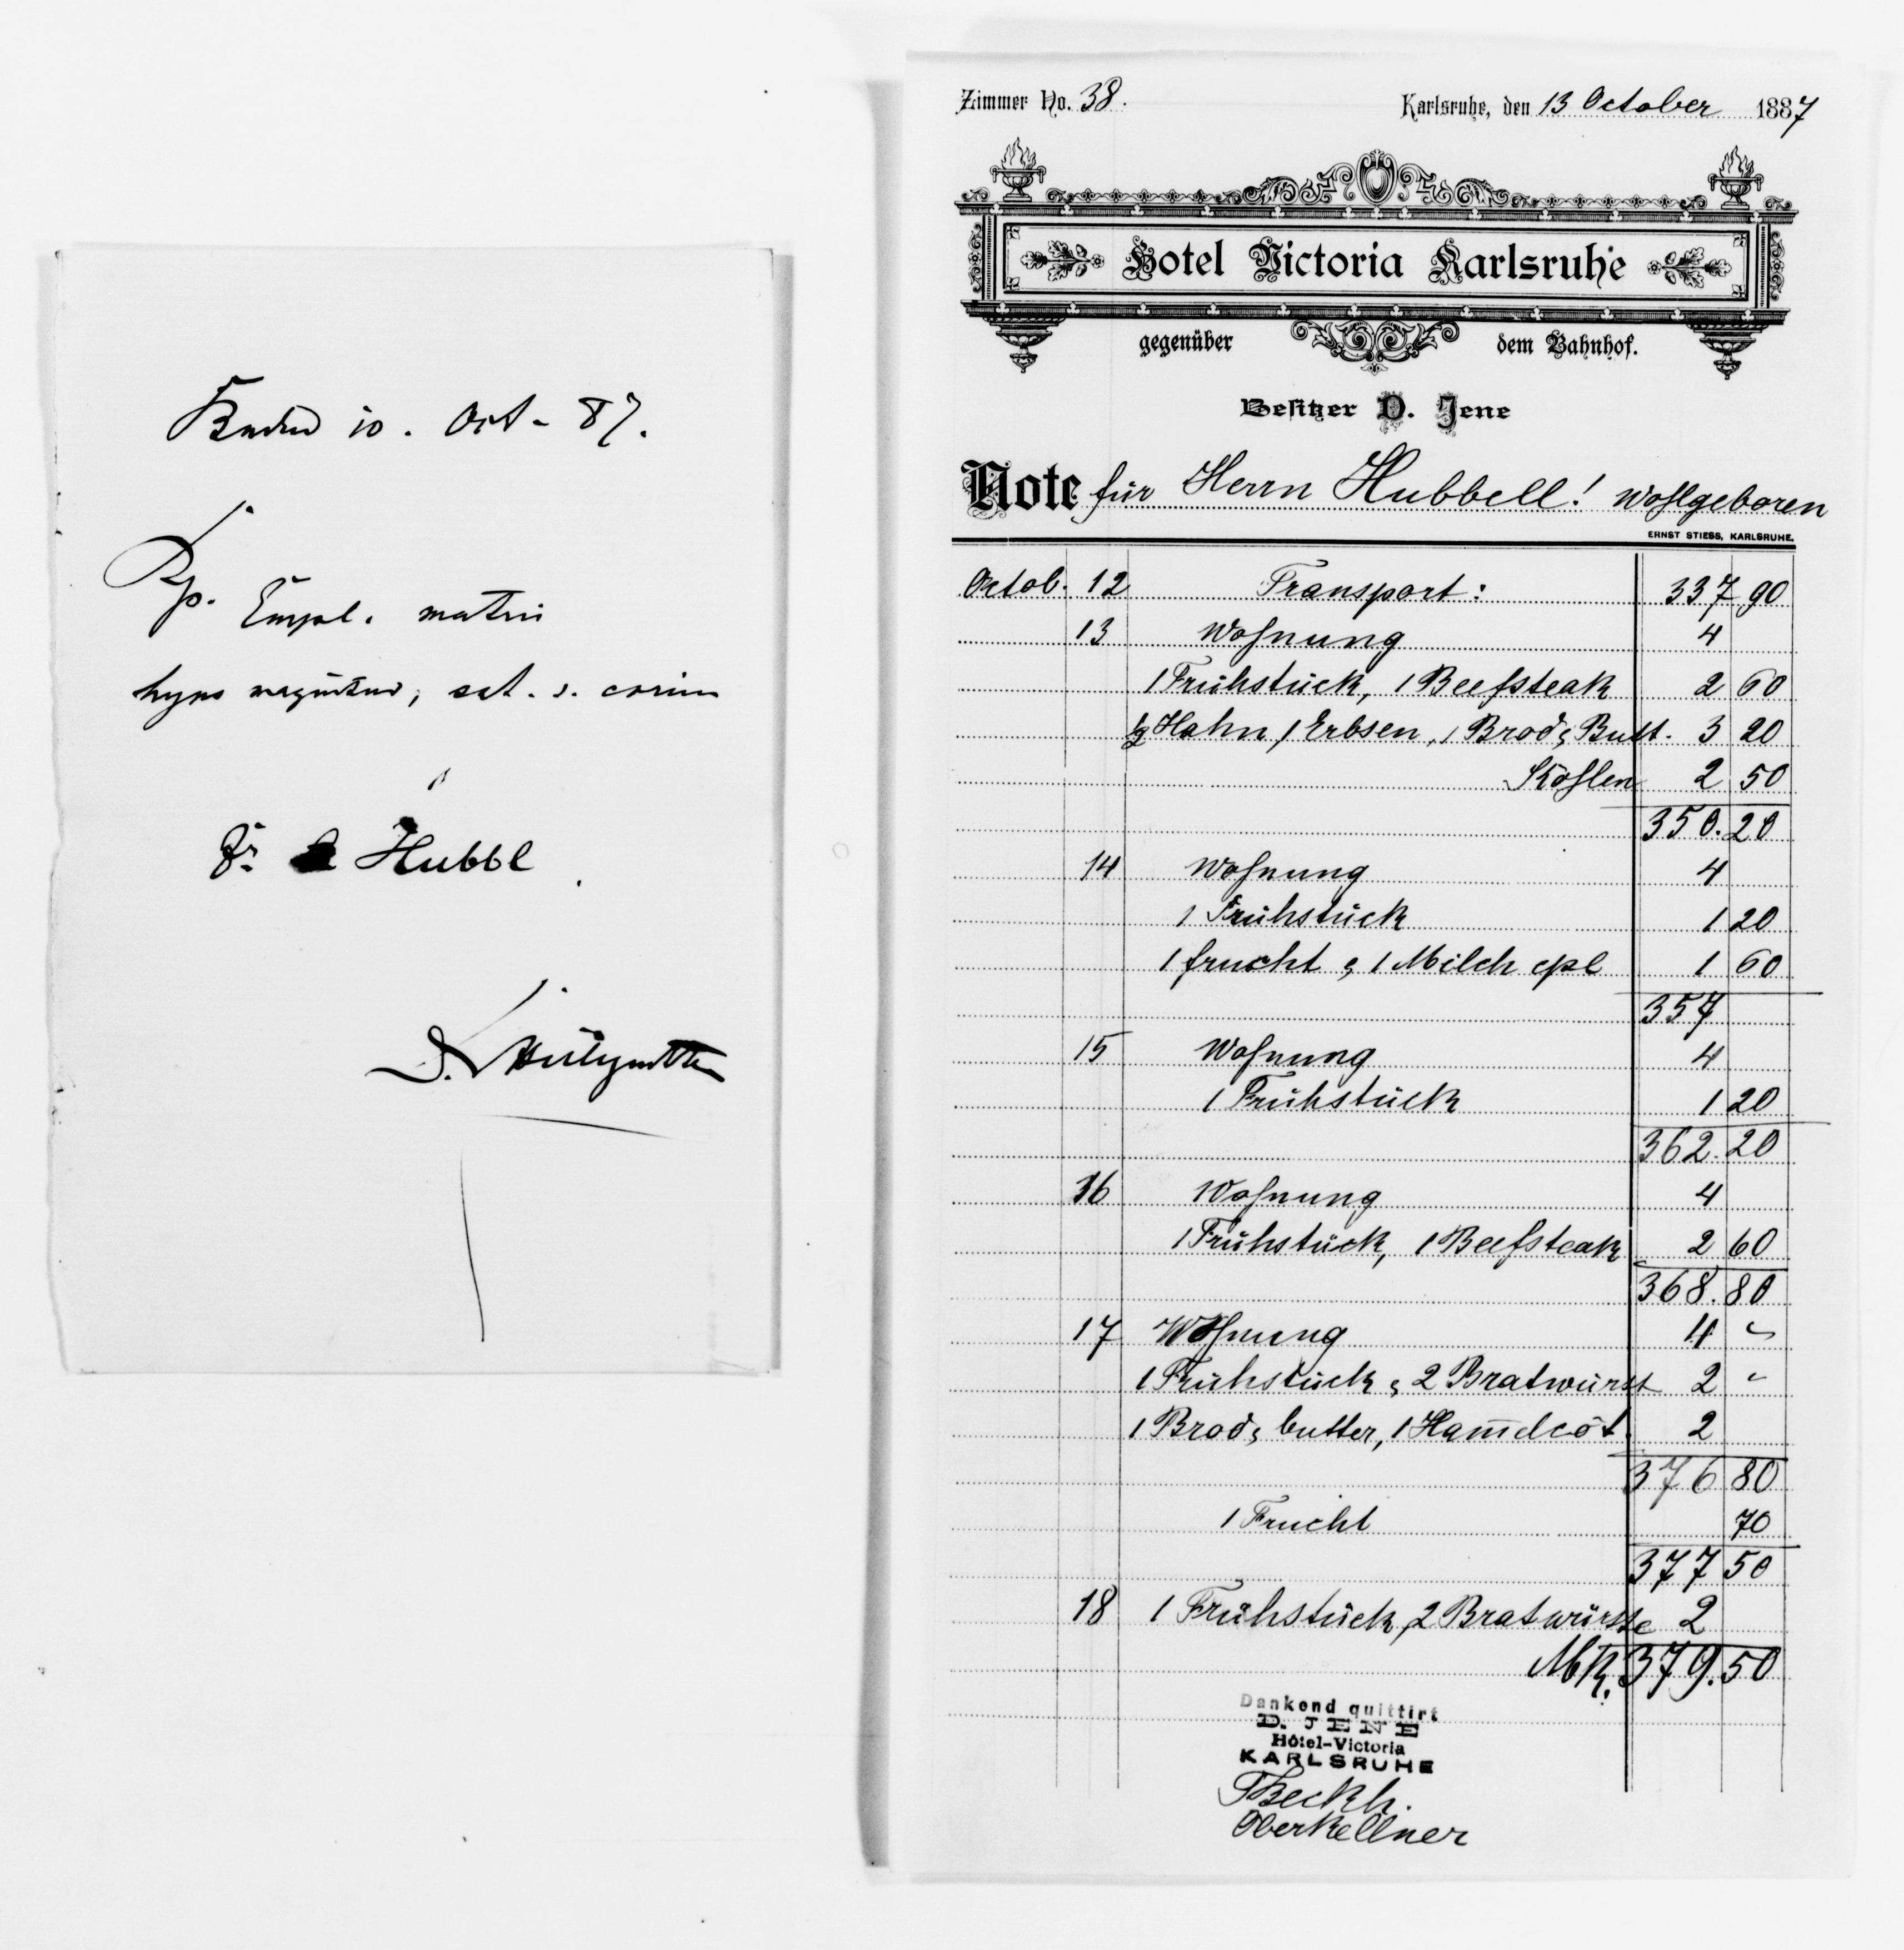 Baden 10. Oct - 87.
Rp.
Empl. matri
sat. s. corium
Hubbl
Zimmer No. 38.
Karlsruhe, den 13 October 1887
Hotel Victoria Karlsruhe
gegenüber dem Bahnhof.
Besitzer D. Jene
Note für Herrn Hubbell! Wohlgeboren
ERNST STIESS, KARLSRUHE.
Octob. 12 Transport: 337 90
13 Wohnung 4
1 Frühstück, 1 Beefsteak 2 60
½ Hahn, 1 Erbsen, 1 Brod, Butt. 3 20
Kohlen 2 50
350.20
14 Wohnung 4
1 Frühstück 1 20
1 frucht, 1 Milch cpl 1 60
357
15 Wohnung 4
1 Frühstück 1 20
362.20
16 Wohnung 4
1 Frühstück, 1 Beefsteak 2 60
368.80
17 Wohnung 4 -
1 Frühstück, 2 Bratwürst 2 -
1 Brod, butter, 2
376 80
1 Frucht 70
377 50
18 1 Frühstück, 2 Bratwürste 2
Mk. 379.50
Dankend quittirt
D. JENE
Hôtel-Victoria
KARLSRUHE
Oberkellner